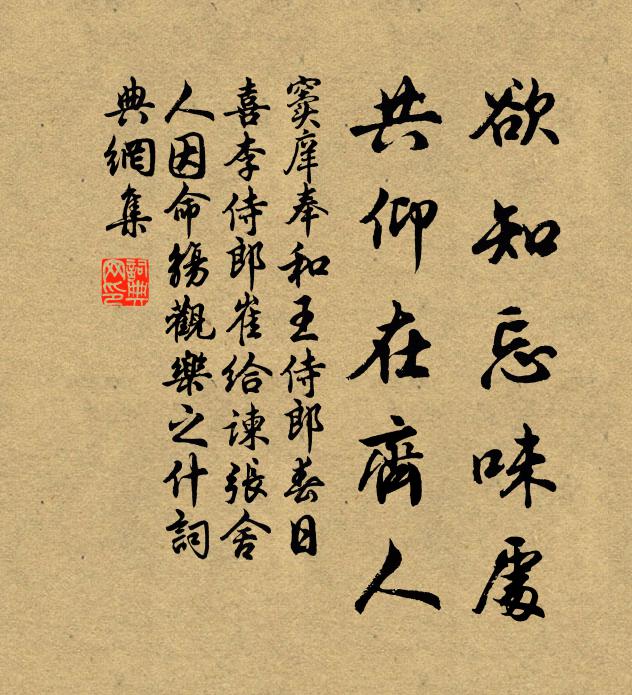 欲知忘味處
共仰在齊人
竇庠奉和王侍郎春日
喜李侍郎崔給諫張舍
人因命觴觀樂之什詞
典網集
詞典
网印